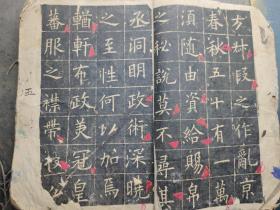 方叔段之作亂京
春秋五十有一萬
須隨由資給賜帛
之秘說莫不尋其
丞洞明政術深曉
之至性何以加焉
輶軒布政美冠皇
蕃服之襟帶
五